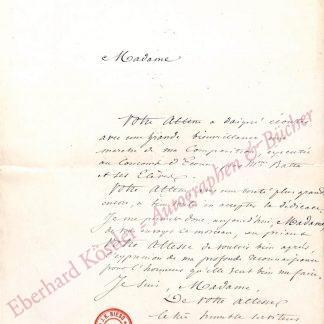 Madame
Votre Altesse a daigné écouter
avec une grande bienveillance
marche de ma Composition exécutée
au Concours d'
et ses Elèves.
Votre Altesse, avec une bonté plus grande
encore, a bien en accepter la dédicace.
Je me permets donc aujourd'hui, Madame
de vous envoyer ce morceau, en priant
Votre Altesse de vouloir bien agréer
l'expression de ma profonde reconnaissance
pour l'honneur qu'elle veut bien me faire.
Je suis, Madame,
De votre altesse
le très humble serviteur
Eberhard Köstler Autographen & Bücher